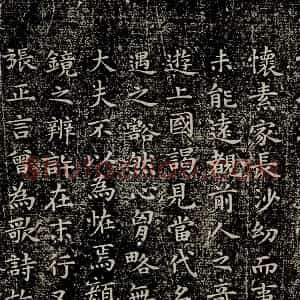 懷素家長沙幼而事
未能遠覩前人之奇
遊上國謁見當代名
遇之豁然心胷略無
大夫不以為恠焉顏
鏡之辨許在末行又
張正言曾為歌詩故